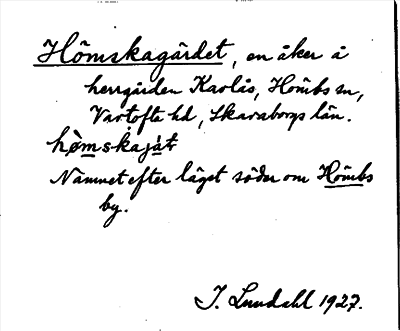 Hömskagärdet, en åker å
herrgården Karlås, Hömbs sn,
Vartofte hd, Skaraborgs län.
hömskajat
Namnet efter läget söder om Hömbs
by.
I. Lundahl 1927.